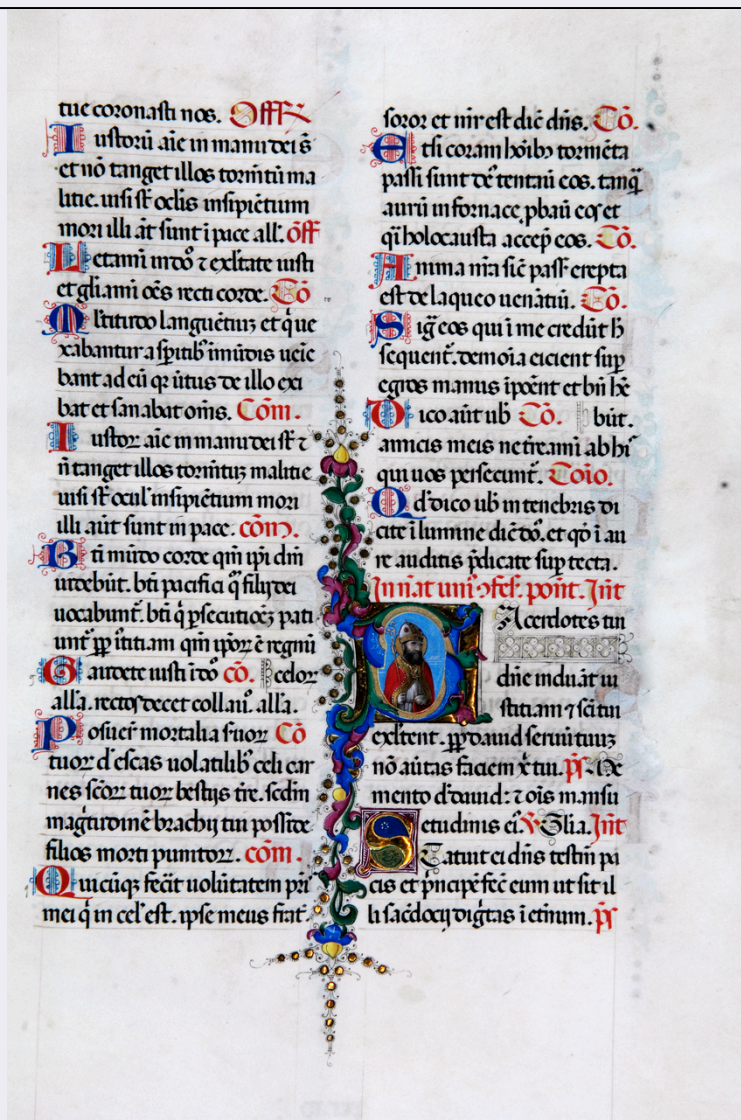 tue coronasti nos. Off℟
Iustorū aīe in manu dei s̄
et nō tanget illos torm̄tū ma
litie. uisi s̄t oclis insipiētium
mori illi āt sunt ī pace all'. off
Letamī in dō ⁊ exl̄tate iusti
et gl̄iami oēs recti corde. Cō
Ml̓titudo languētiuꝫ et q̄ ue
xabantur a sp̄itib' imūdis ueīe
bant ad eū qꝛ ūtus de illo exi
bat et sanabat om̄s. Cōm.
Iustoꝝ aīe in manu dei s̄t ⁊
n̄ tanget illos torm̄tuꝫ malitie
uisi s̄t ocul' insipiētium mori
illi aūt sunt in pace. cōm.
Bt̄i mūdo corde qm̄ ip̄i dm̄
uidebūt. bt̄i pacifici q̄ filij dei
uocabunt̄. bt̄i q̄ ꝑsecutiōeꝫ pati
unt̄ ꝓp̄ iūtitiam qm̄ ip̄oꝝ ē regnū
Gaudete iusti ī dō cō. celoꝝ
all'a. rectos decet collaū. all'a.
Posuer̄ mortalia s̄uoꝝ Cō
tuoꝝ d' escas uolatilib' celi car
nes sc̄oꝝ tuoꝝ bestijs tr̄e. scd̄m
magt̄udinē brachij tui posside
filios morti punitoꝝ. cōm.
Quicūqꝫ fec̄it uolūtatem pr̄i'
mei q̄ in cel' est. ipse meus frat̄
soror et mr̄ est dic̄ dn̄s. Cō.
Etsi coram hōib; tormēta
passi sunt de' tentaū eos. tanq̄
aurū in fornace ꝓbaū eos et
q̄i holocausta accep̄ eos. Cō.
Anima nr̄a sic̄ pass' erepta
est de laqueo uenātiū. Cō.
Sig̓ eos qui ī me credūt h̄
sequent̄. demoīa eicient sup̄
egros manus īpoēnt et bn̄ hē
Dico aūt ub̄ Cō. būt.
amicis meis ne tr̄eamī ab hi'
qui uos persecunt̄. Coīo.
Qd' dico ub̄ in tenebris di
cite ī lumine dic̄ dō. et qd̄ ī au
re auditis p̄dicate sup̄ tecta.
In n̄at uni' ↄfes'. pont̄. Int̄
Sacerdotes tui
dn̄e induāt iu
stitiam ⁊ sc̄i tui
exl̄tent. ꝓp̄ dauid seruū tuuꝫ
nō aūtas faciem xp̄i tui. p̄s. Me
mento d' dauid: ⁊ oīs mansu
etudinis ei'. ℣. Glīa. Int̄
Statuit ei dn̄s testm̄ pa
cis et p̄ncipē fec̄ eum ut sit il
li sac̄docij dig̓tas ī et̄num. p̄s